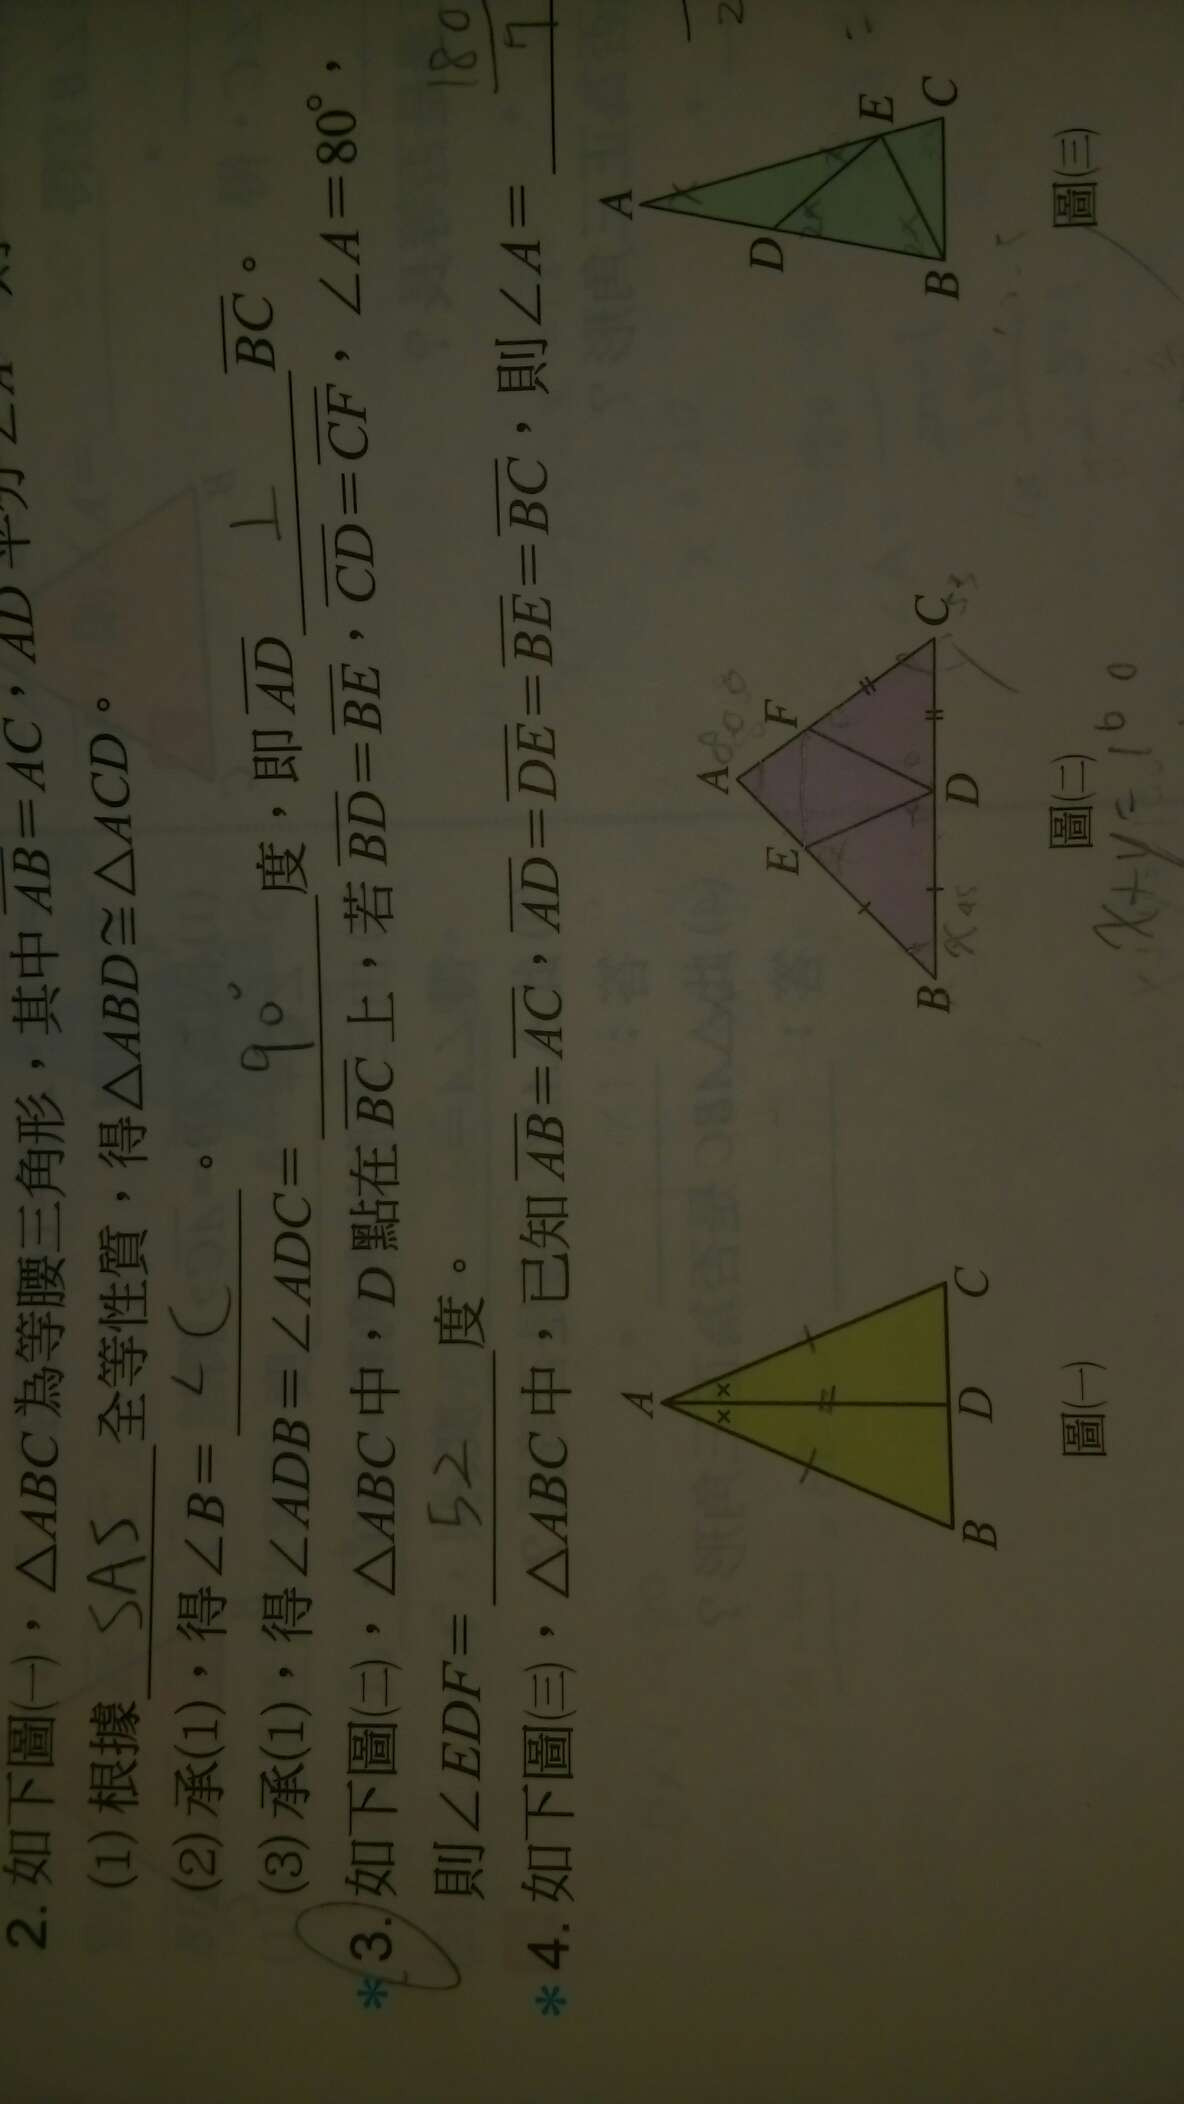 2. 如下圖(一)，△ABC為等腰三角形，其中AB=AC，AD平分∠A
(1) 根據 SAS 全等性質，得△ABD≅△ACD。
(2) 承(1)，得∠B= ∠C 。
(3) 承(1)，得∠ADB=∠ADC= 90° 度，即AD ⊥ BC。
*3. 如下圖(二)，△ABC中，D點在BC上，若BD=BE，CD=CF，∠A=80°，
則∠EDF= 52 度。
*4. 如下圖(三)，△ABC中，已知AB=AC，AD=DE=BE=BC，則∠A= 180/7
A
B D C
圖(一)
A
E F
B D C
圖(二)
x+y=160
A
D E
B C
圖(三)